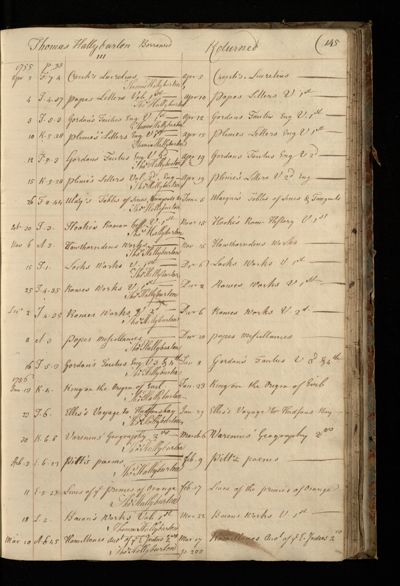 Thomas Hallyburton Borrowed Returned 145
1755 p. 93
Apr 2 F. 7. 4 Creech's Lucretius Apr 5 Creech's Lucretius
Thomas Hallyburton
4 Popes Letters Vol. 1st apr 10 Popes Letters V 1st
Tho: Hallyburton
5 F. 5. 3 Gordon's Tacitus Eng. V. 1st Apr 12 Gordons Tacitus Eng V 1st
Thomas Hallyburton
10 K. 5. 28 Plinies Letters Eng V 1st apr 15 Plinies Letters Eng V 1st
Thomas Hallyburton
12 F. 5. 3 Gordons Tacitus Eng V. 2d Apr 19 Gordons Tacitus Eng V 2d
Tho: Hallyburton
15 K. 5. 28 Plinie's Letters Vol. 2d Eng Apr 19 Plinie's Letters V 2d Eng
Tho: Hallyburton
26 Tables of Sines June 5 Tables of Sines & Tangents
Tho: Hallyburton
Oct 20 F. 3. Hooke's Roman V. 1st Nov 15 Hooke's Rom History V 1st
Tho: Hallyburton
Nov 6 A. 3 Hawthorndens Works Nov 15 Hawthorndens Works
Tho: Hallyburton
15 F. 1. Locks Works V 1st Dec 6 Locks Works V 1st
Tho: Hallyburton
25 F. 4. 25 Rowes Works V. 1st Dec 2 Rowes Works V 1st
Tho: Hallyburton
Dec 2 F. 4. 25 Rowes Works V 2d Dec 6 Rowes Works V 2d
Tho: Hallyburton
8 Popes Miscellanies Dec 10 popes Miscellanies
Tho: Hallyburton
16 F. 5. 3 Gordon's Tacitus Eng V. 3 & 4th Jan 2 Gordon's Tacitus V 3d & 4th
Tho: Hallyburton
1756
Jan 13 K. 4. King on the Origin of Evil Jan 23 King on the Origin of Evil
Tho: Hallyburton
23 F. 6. Ellis's Voyage to Hudsons bay Jan 29 Ellis's Voyage to Hudsons Bay
Tho: Hallyburton
30 K. 6. 8 Varenius' Geography 2nd March 6 Varenius' Geography 2nd
Tho: Hallyburton
Feb. 3 Pitt's poems Feb 9 Pitt's poems
Tho: Hallyburton
11 Lives of ye Princes of Orange Feb 17 Lives of the princes of Orange
Tho: Hallyburton
18 Bacon's Works Vol. 1st Mar 22 Bacons Works V 1st
Thomas Hallyburton
Mar 10 A. 6. 45 Hamiltons Acct of ye E. Indies 2nd Mar 17 Hamiltones Acct of ye E. Indies 2nd
Tho: Hallyburton p. 200